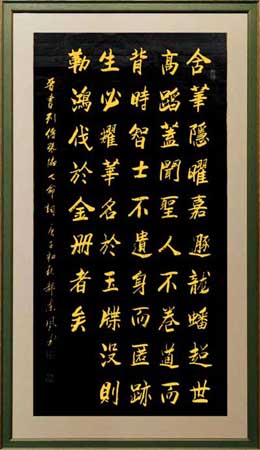 含華隱曜嘉遯龍蟠超世
高蹈蓋聞聖人不卷道而
背時智士不遺身而匿跡
生必耀華名於玉牒没則
勒鴻伐於金册者矣
晉書列傳張協七命詞庚子初秋